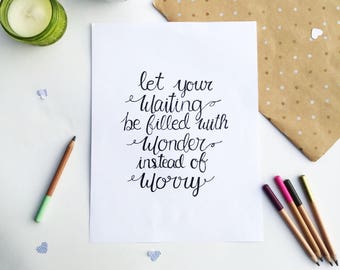 let your
Waiting
be filled with
Wonder
instead of
Worry